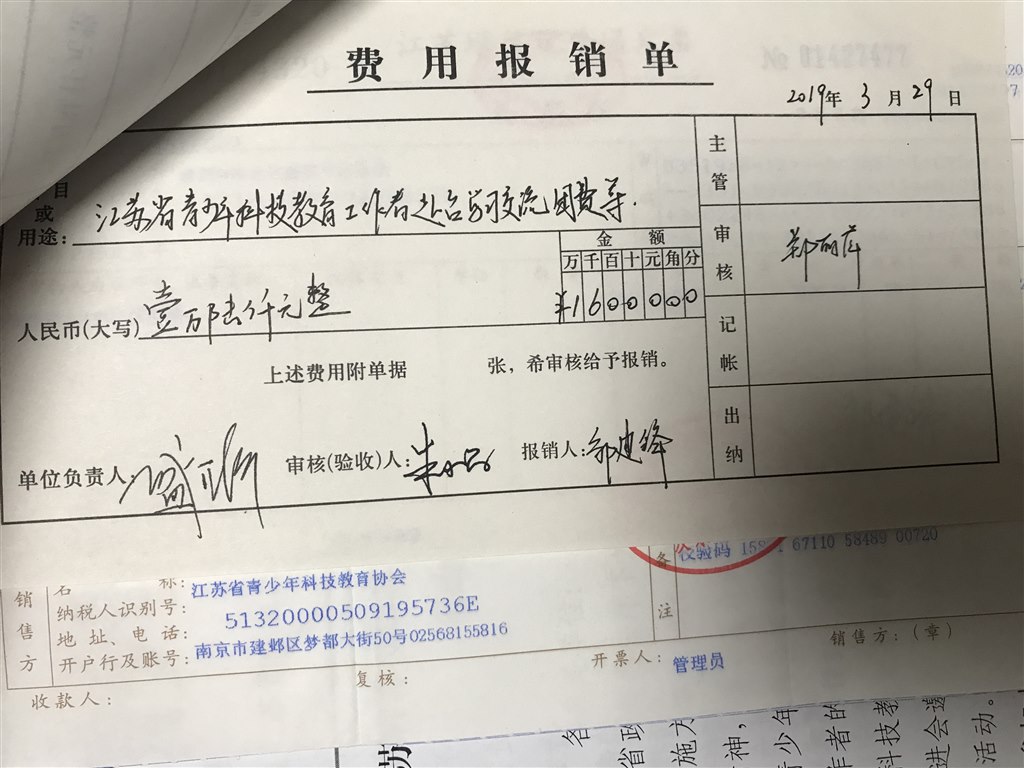 费用报销单
2019年 3 月 29 日
目
或
用途：江苏省青少年科技教育工作者赴台湾交流团费等.
金 额
万千百十元角分
¥1600000
人民币(大写) 壹万陆仟元整
上述费用附单据 张，希审核给予报销。
单位负责人
审核(验收)人：
报销人：郭建锋
主管
审核 郑丽萍
记帐
出纳
销售方
名 称：江苏省青少年科技教育协会
纳税人识别号：51320000509195736E
地 址、电 话：南京市建邺区梦都大街50号02568155816
开户行及账号：
备注
校验码 67110 58489 00720
收款人：
复核：
开票人：管理员
销售方：(章)